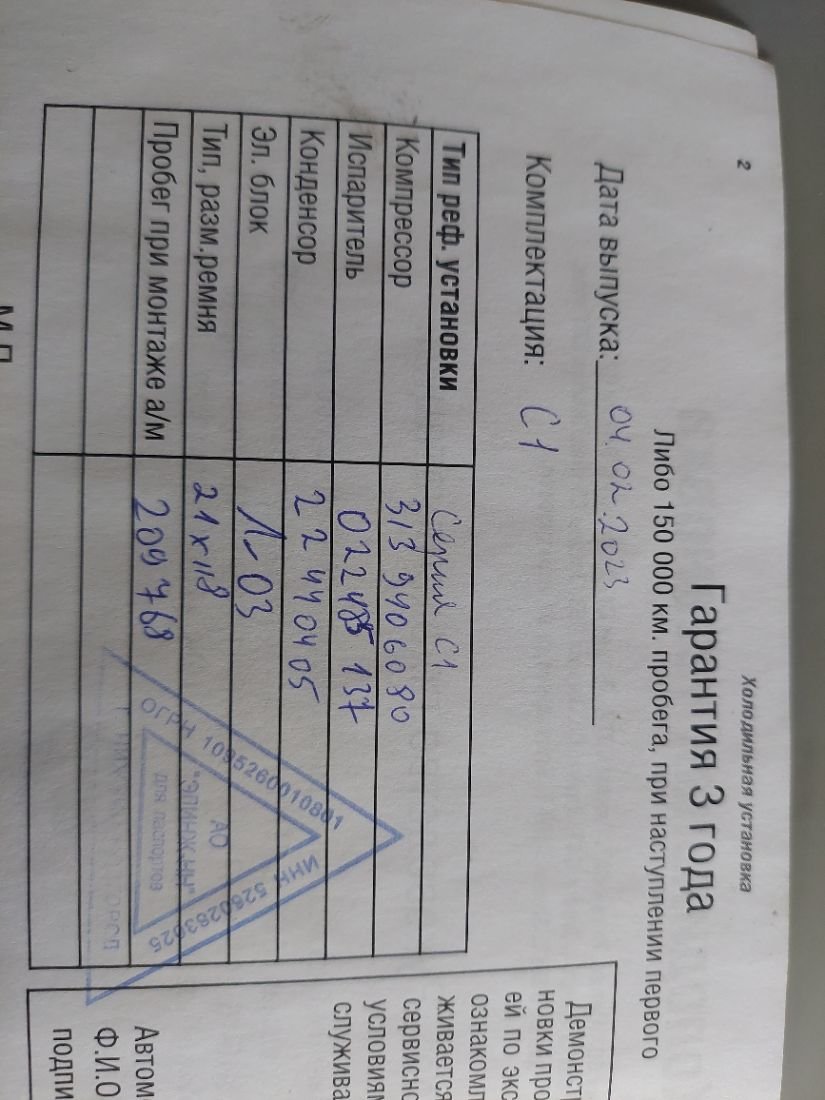 2
Холодильная установка
Гарантия 3 года
Либо 150 000 км. пробега, при наступлении первого
Дата выпуска: 04.02.2023
Комплектация: С1
Тип реф. установки Серия С1
Компрессор 3139406080
Испаритель 137
Конденсор 22440405
Эл. блок 1-03
Тип, разм.ремня 21х118
Пробег при монтаже а/м 209768
ОГРН 1095260010801
ИНН 5260283025
АО
"ЭЛИНЖ.НН"
для паспортов
М.П
Демонст
новки про
ей по экс
ознакомл
живается
сервисно
условиям
служива
Автом
Ф.И.О
подпи